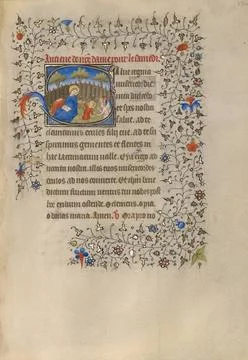 Antiene de nre dame pour le samedi.
Salue regina
misericordie
uita dulcedo
et spes nostra
salue. ad te
clamamus exules filii eue. ad te su
spiramus gementes et flentes in
hac lacrimarum ualle. Eya ergo ad
uocata nostra. illos tuos misericordes
oculos ad nos conuerte. Et ihm bene
dictum fructum uentris tui nobis post
hoc exilium ostende. O clemens. o pia
o dulcis maria. Amen. V Ora pro no